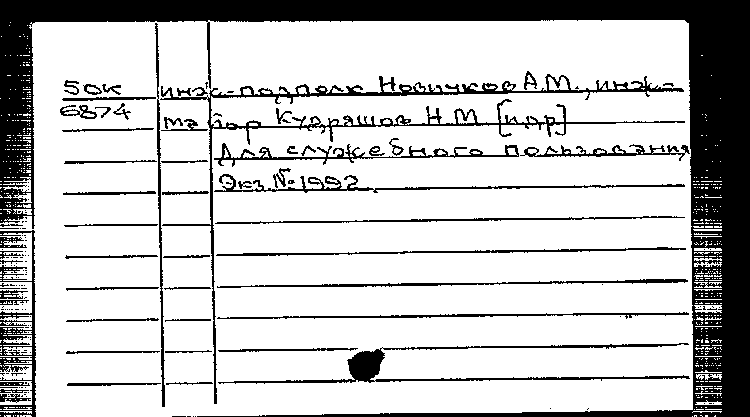 50к инж-подполк Новичков А.М., инж-
6874 майор Кудряшов Н.М [и др]
Для служебного пользования
Экз №1992